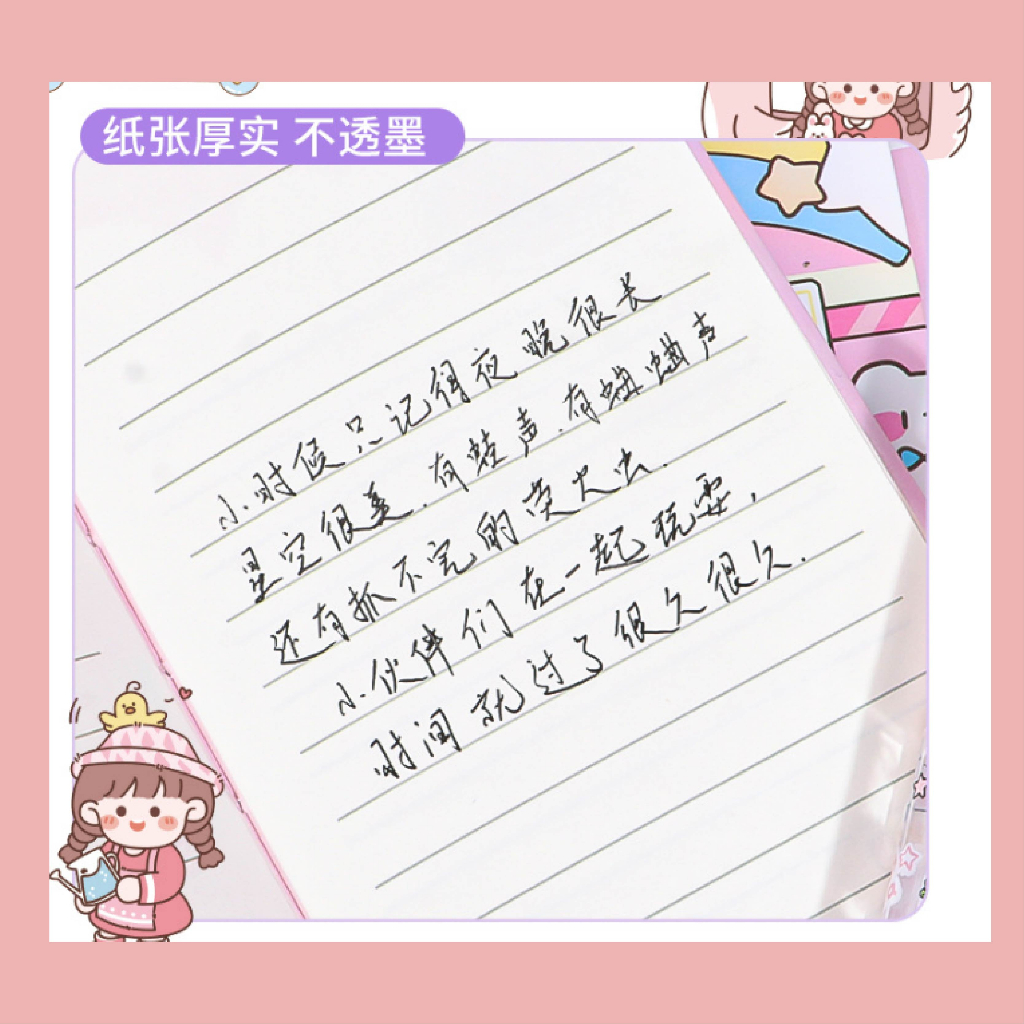 纸张厚实 不透墨
小时候只记得夜晚很长
星空很美.有蛙声.有蛐蛐声
还有抓不完的萤火虫.
小伙伴们在一起玩耍,
时间就过了很久很久.